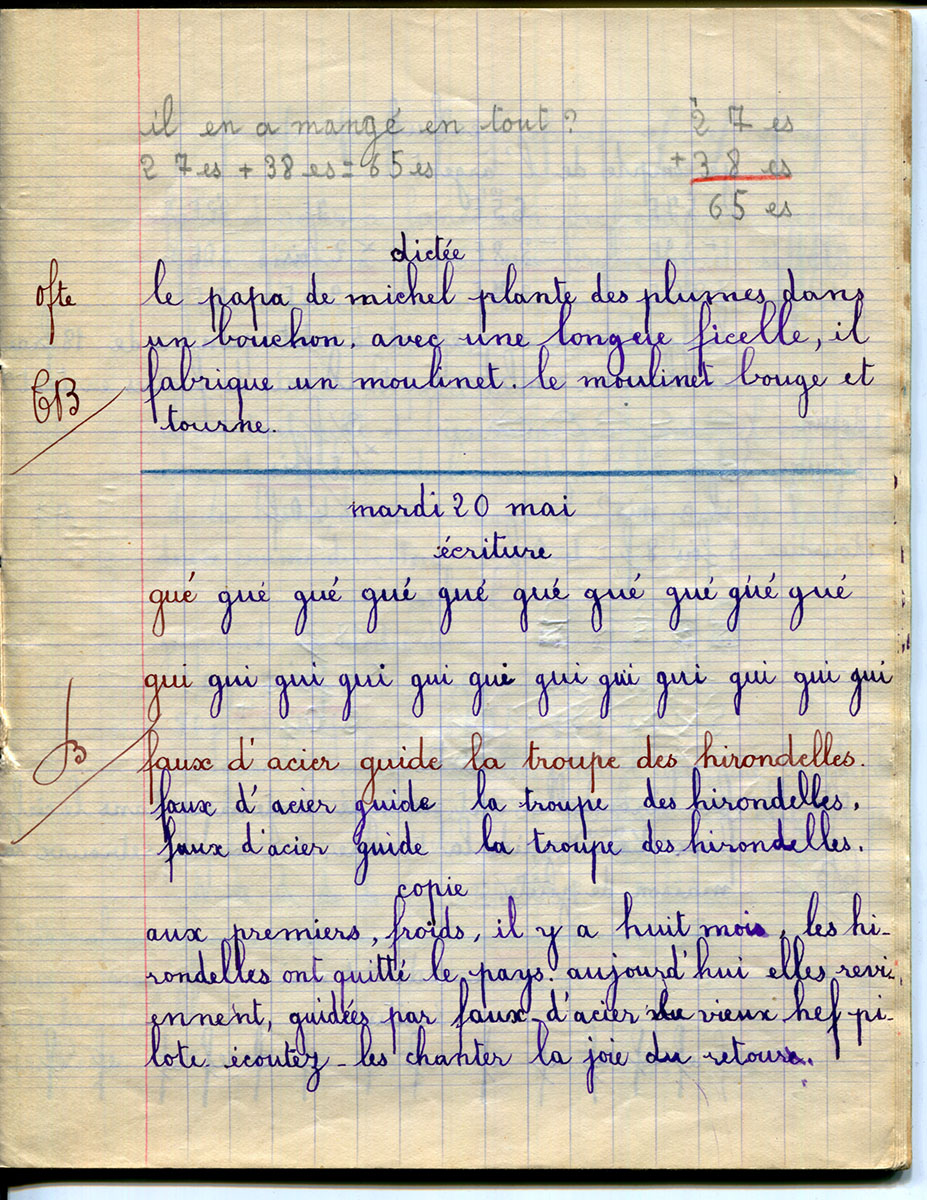 il en a mangé en tout ? 2 7 es
2 7 es + 38 es = 65 es + 3 8 es
6 5 es
dictée
ofte
le papa de michel plante des plumes dans
un bouchon. avec une longue ficelle, il
TB
fabrique un moulinet. le moulinet bouge et
tourne.
mardi 20 mai
écriture
gué gué gué gué gué gué gué gué gué gué
gui gui gui gui gui gui gui gui gui gui gui gui
B
faux d'acier guide la troupe des hirondelles.
faux d'acier guide la troupe des hirondelles.
faux d'acier guide la troupe des hirondelles.
copie
aux premiers, froids, il y a huit mois, les hi-
rondelles ont quitté le pays. aujourd'hui elles revi-
ennent, guidées par faux-d'acier le vieux hef pi-
lote. écoutez-les chanter la joie du retour.